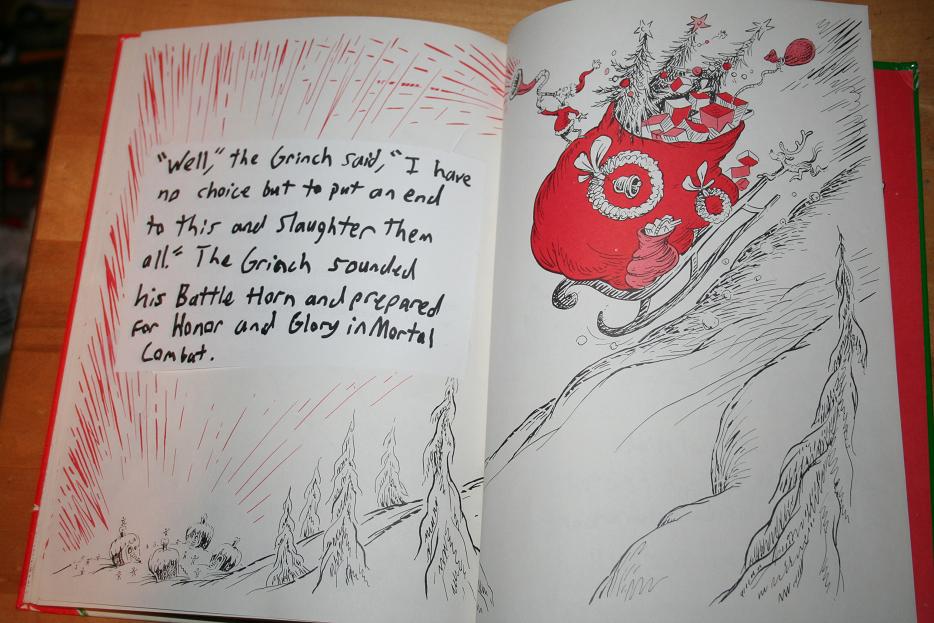 "Well," the Grinch said, "I have
no choice but to put an end
to this and Slaughter Them
all." The Grinch sounded
his Battle Horn and prepared
For Honor and Glory in Mortal
Combat.